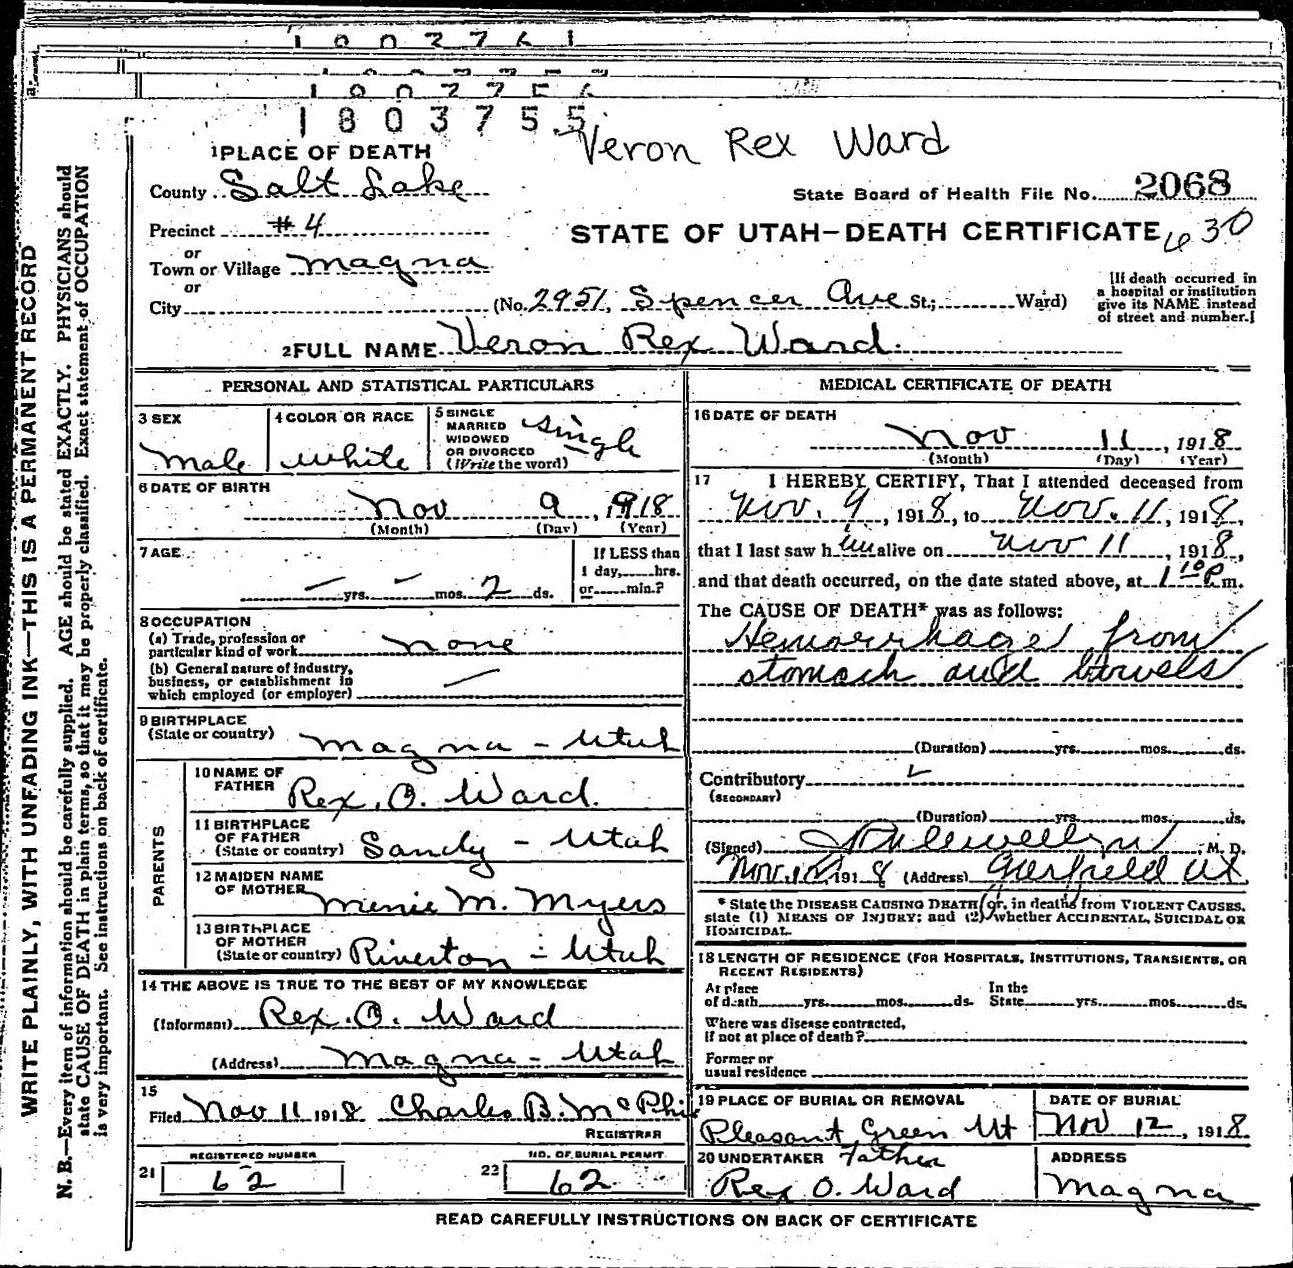 1 0 0 2 7 6 1
1 8 0 3 7 5 5
Veron Rex Ward
1 PLACE OF DEATH
County Salt Lake
State Board of Health File No. 2068
Precinct #4
STATE OF UTAH—DEATH CERTIFICATE 630
or
Town or Village Magna
or
City (No. 2951, Spencer Ave St.; Ward)
[If death occurred in
a hospital or institution
give its NAME instead
of street and number.]
2 FULL NAME Veron Rex Ward.
PERSONAL AND STATISTICAL PARTICULARS
3 SEX
Male
4 COLOR OR RACE
White
5 SINGLE
MARRIED
WIDOWED
OR DIVORCED
(Write the word)
Single
6 DATE OF BIRTH
Nov 9, 1918
(Month) (Day) (Year)
7 AGE
— yrs. — mos. 2 ds.
If LESS than
1 day, hrs.
or min.?
8 OCCUPATION
(a) Trade, profession or
particular kind of work none
(b) General nature of industry,
business, or establishment in
which employed (or employer) —
9 BIRTHPLACE
(State or country) Magna - Utah
PARENTS
10 NAME OF
FATHER Rex. O. Ward.
11 BIRTHPLACE
OF FATHER
(State or country) Sandy - Utah
12 MAIDEN NAME
OF MOTHER Minie M. Myers
13 BIRTHPLACE
OF MOTHER
(State or country) Riverton - Utah
14 THE ABOVE IS TRUE TO THE BEST OF MY KNOWLEDGE
(Informant) Rex. O. Ward
(Address) Magna - Utah
15
Filed Nov 11 1918 Charles B. McPhi
REGISTRAR
21 REGISTERED NUMBER
62
22 NO. OF BURIAL PERMIT
62
MEDICAL CERTIFICATE OF DEATH
16 DATE OF DEATH
Nov 11, 1918
(Month) (Day) (Year)
17 I HEREBY CERTIFY, That I attended deceased from
Nov. 9, 1918, to Nov. 11, 1918,
that I last saw him alive on Nov 11, 1918,
and that death occurred, on the date stated above, at 1 10 P.m.
The CAUSE OF DEATH* was as follows:
Hemorrhage from
stomach and bowels
(Duration) yrs. mos. ds.
Contributory
(SECONDARY)
(Duration) yrs. mos. ds.
(Signed) M. D.
Nov. 12, 1918 (Address) Garfield Ut
* State the DISEASE CAUSING DEATH, or, in deaths from VIOLENT CAUSES,
state (1) MEANS OF INJURY; and (2) whether ACCIDENTAL, SUICIDAL OR
HOMICIDAL.
18 LENGTH OF RESIDENCE (FOR HOSPITALS, INSTITUTIONS, TRANSIENTS, OR
RECENT RESIDENTS)
At place
of death yrs. mos. ds.
In the
State yrs. mos. ds.
Where was disease contracted,
if not at place of death?
Former or
usual residence
19 PLACE OF BURIAL OR REMOVAL
Pleasant Green Ut
DATE OF BURIAL
Nov 12, 1918
20 UNDERTAKER Father
Rex O. Ward
ADDRESS
Magna
READ CAREFULLY INSTRUCTIONS ON BACK OF CERTIFICATE
WRITE PLAINLY, WITH UNFADING INK—THIS IS A PERMANENT RECORD
N. B.—Every item of information should be carefully supplied. AGE should be stated EXACTLY. PHYSICIANS should
state CAUSE OF DEATH in plain terms, so that it may be properly classified. Exact statement of OCCUPATION
is very important. See instructions on back of certificate.